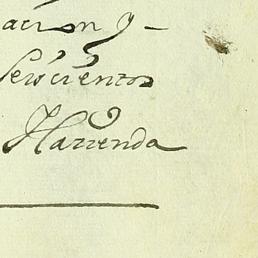 acion y
Seiscientos
Hazienda